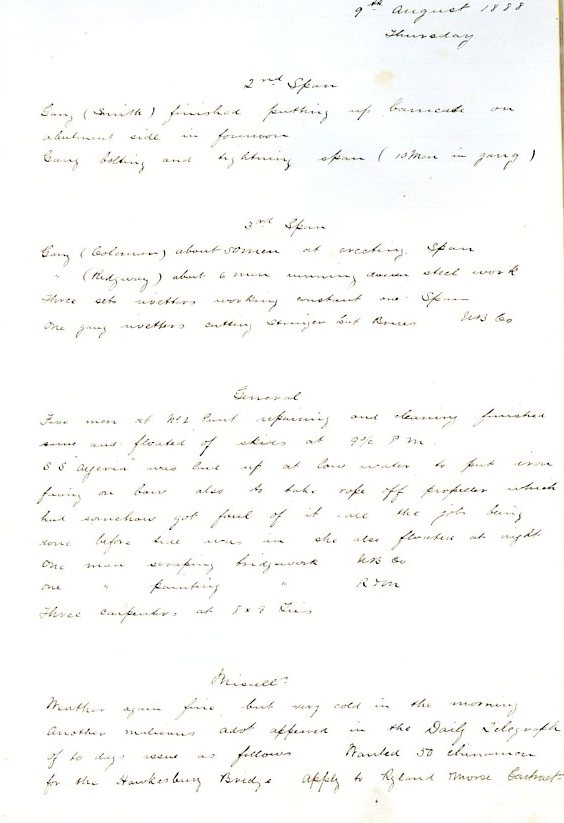 9th August 1888
Thursday
2nd Span
Gang (Smith) finished putting up barricade on
abutment side in forenoon
Gang bolting and tightning span (10 Men in gang)
3rd Span
Gang (Coleman) about 50 men at erecting Span
" (Ridgway) about 6 men running down steel work
Three sets rivetters working constant one Span
One gang rivetters cutting Stringer Lat Braces UB Co
General
Five men at No 2 Punt repairing and cleaning finished
same and floated of skids at PM
SS "Ageria" was laid up at low water to put iron
facing on bow also to take rope off propeller which
had somehow got foul of it all the job being
done before tide was in she also floated at night
One man scraping bridgework UB Co
one " painting " R & M
Three carpenters at 8 x 9 Ties
Miscells
Weather again fine but very cold in the morning
Another malicious advt appeared in the Daily Telegraph
of to days issue as follows Wanted 50 chinamen
for the Hawkesbury Bridge Apply to Ryland Morse Contract